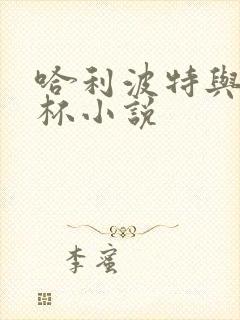 哈利波特與
杯小說
李蜜